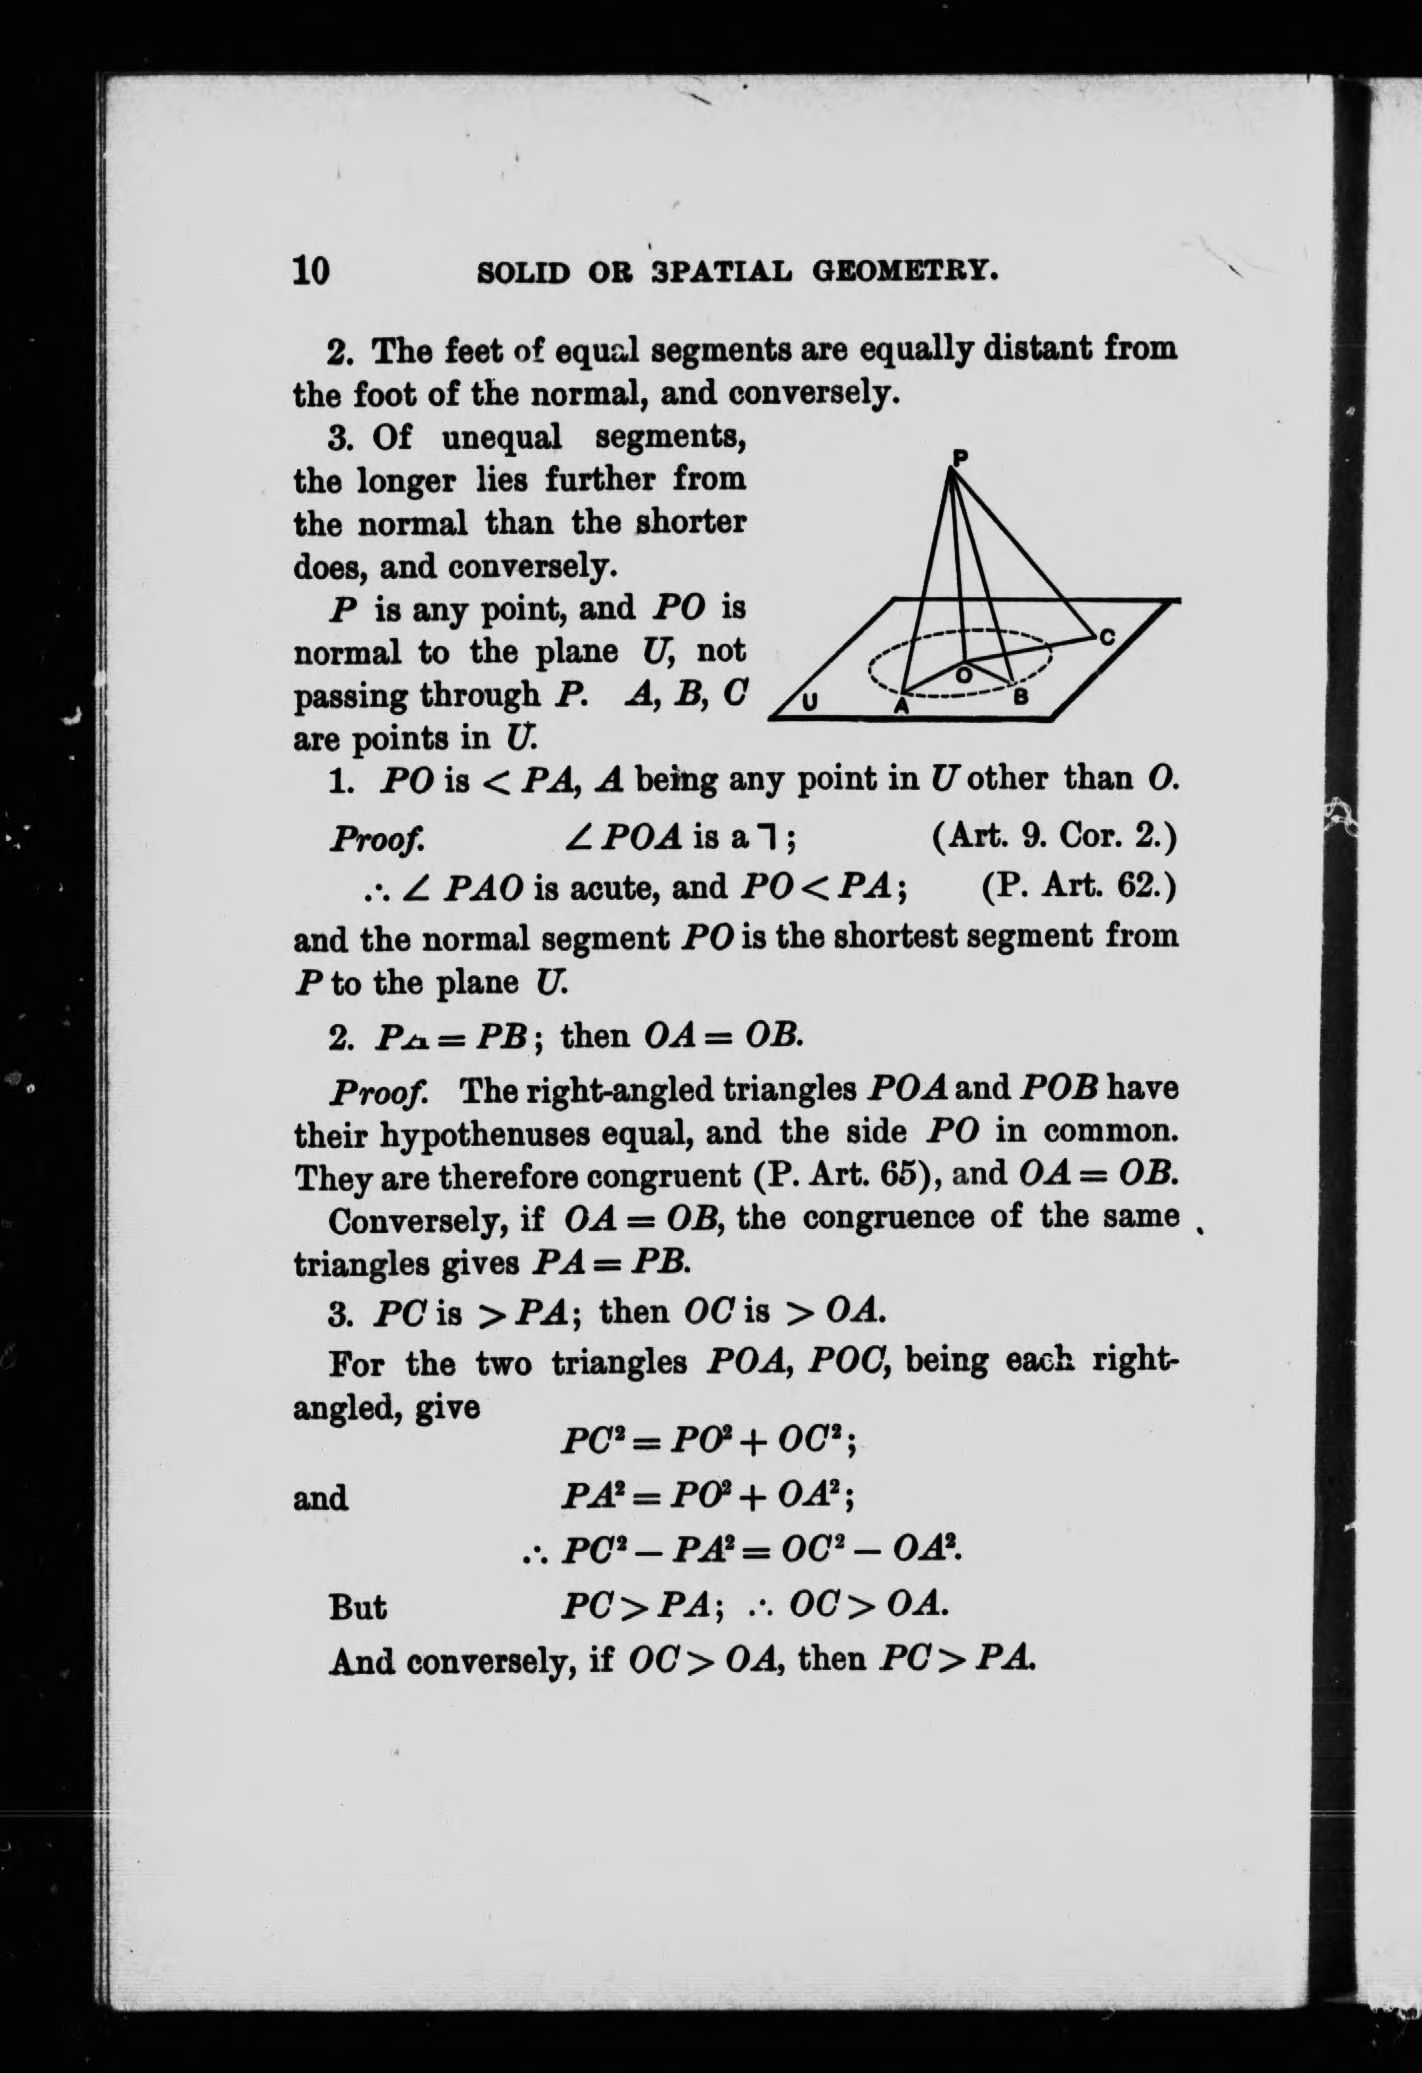 10 SOLID OR SPATIAL GEOMETRY.
2. The feet of equal segments are equally distant from
the foot of the normal, and conversely.
3. Of unequal segments,
the longer lies further from
the normal than the shorter
does, and conversely.
P is any point, and PO is
normal to the plane U, not
passing through P. A, B, C
are points in U.
P
C
O
U
A
B
1. PO is < PA, A being any point in U other than O.
Proof. ∠ POA is a ˥; (Art. 9. Cor. 2.)
∴ ∠ PAO is acute, and PO < PA; (P. Art. 62.)
and the normal segment PO is the shortest segment from
P to the plane U.
2. PA = PB; then OA = OB.
Proof. The right-angled triangles POA and POB have
their hypothenuses equal, and the side PO in common.
They are therefore congruent (P. Art. 65), and OA = OB.
Conversely, if OA = OB, the congruence of the same
triangles gives PA = PB.
3. PC is > PA; then OC is > OA.
For the two triangles POA, POC, being each right-
angled, give
PC² = PO² + OC²;
and PA² = PO² + OA²;
∴ PC² – PA² = OC² – OA².
But PC > PA; ∴ OC > OA.
And conversely, if OC > OA, then PC > PA.